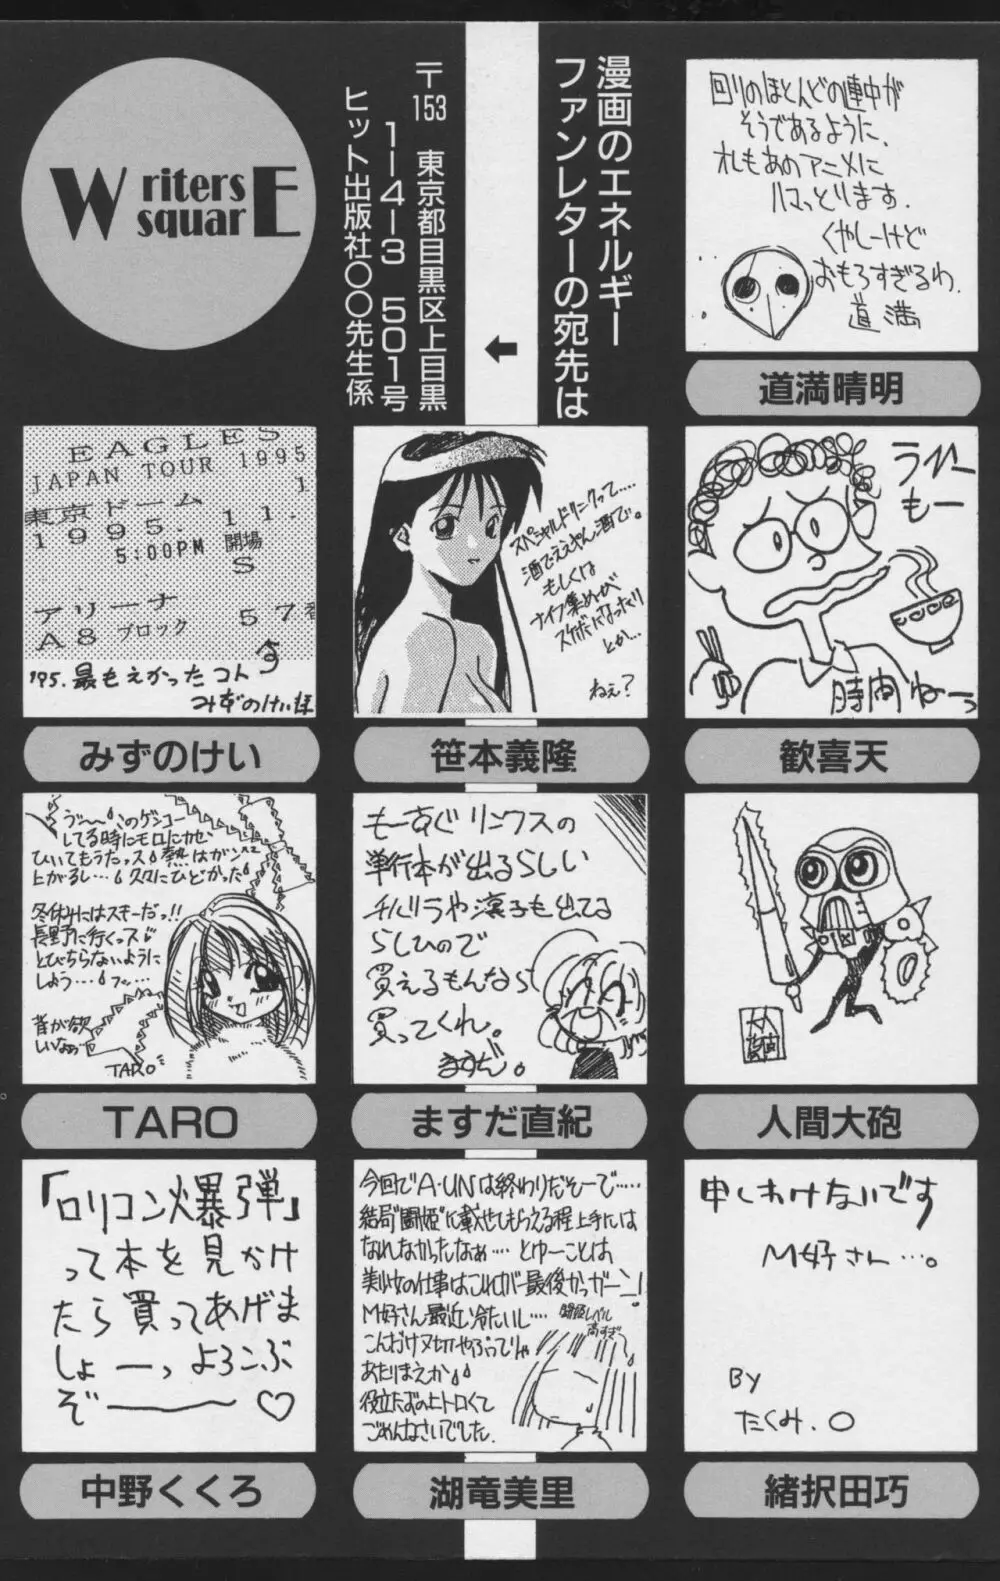 Writers
squarE
漫画のエネルギー
ファンレターの宛先は
〒153 東京都目黒区上目黒
1-4-3 501号
ヒット出版社〇〇先生係
回りのほとんどの連中が
そうであるように、
オレもあのアニメに
ハマっとります.
くやしーけど
おもろすぎるわ.
道満
道満晴明
EAGLES
JAPAN TOUR 1995
東京ドーム
1995.11.
5:00PM 開場
S
アリーナ 57番
A8 ブロック
'95.最もよかったコト
みずのけい
みずのけい
スペシャルドリンクって……
酒でええやん酒で。
もしくは
ナイフ集めが
とか…
ねぇ?
笹本義隆
ラーメン
もー
時間ねーっ
歓喜天
してる時にモロにカゼ
ひいてもうたッス 熱はガンガン
上がるし… 久々にひどかった
冬休みにはスキーだっ!!
長野に行くっス
とびちらないように
しよう…
昔が欲
しいなぁ
TARO
TARO
もーすぐリンクスの
単行本が出るらしい
チハリラや凛子も出てる
らしひので
買えるもんなら
買ってくれ。
ますだ。
ますだ直紀
人間大砲
「ロリコン爆弾」
って本を見かけ
たら買ってあげま
しょーっ よろこぶ
ぞ――♡
中野くくろ
今回でA・UNは終わりだそーで……
結局"闘姫"に載せてもらえる程上手には
なれなかったなぁ…とゆーことは
美少女の仕事はこれが最後かっガーン!
M好さん最近冷たいし…
闘姫レベル
高すぎ
こんだけヌキやがってりゃ
あたりまえか
役立たずのヒトロくて
ごめんなさいでした.
湖竜美里
申しわけないです
M好さん…。
By
たくみ.〇
緒択田巧